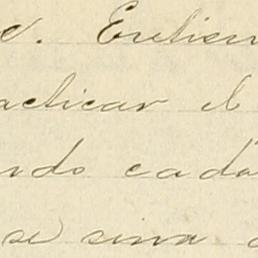 c. Entien
acticar el
ndo cada
se sirva